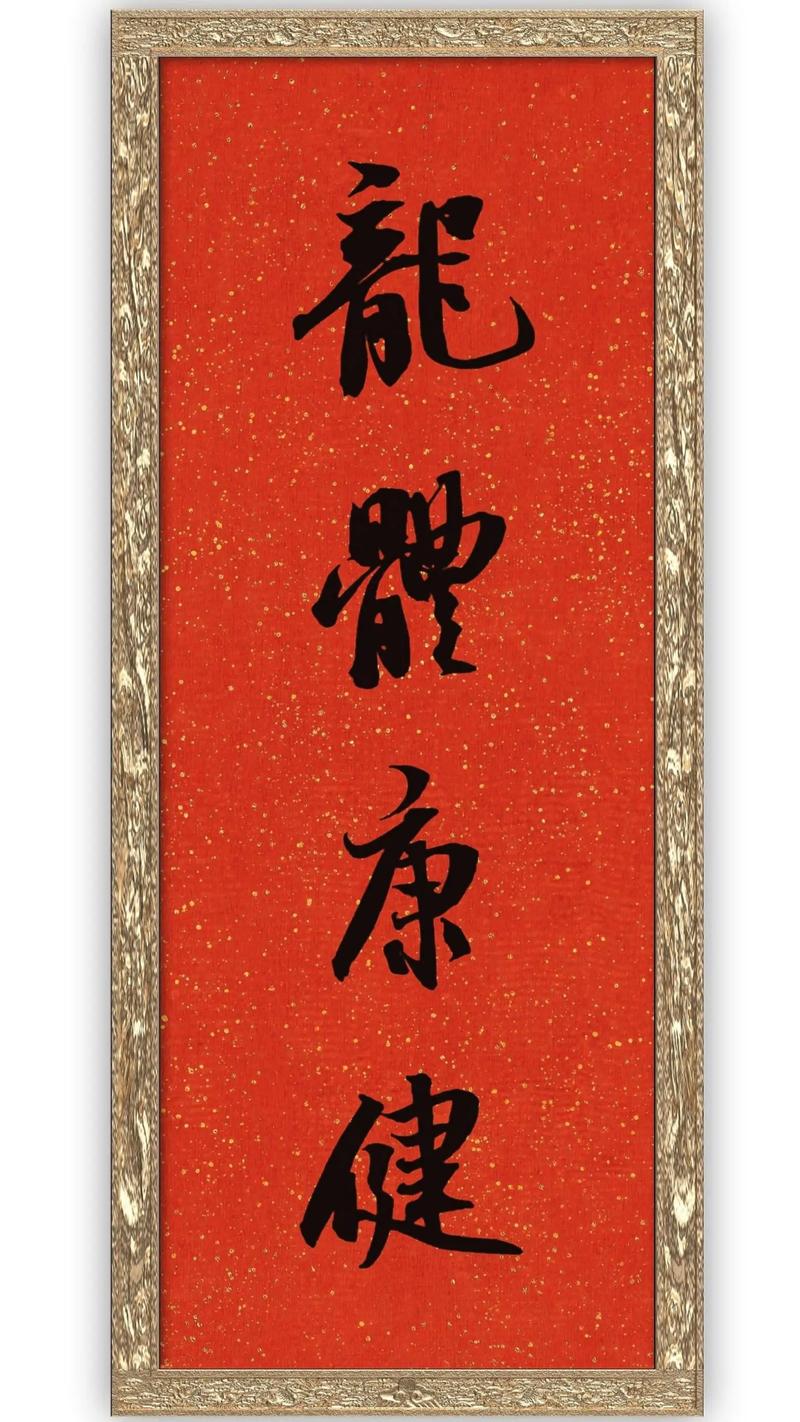 龍體康健